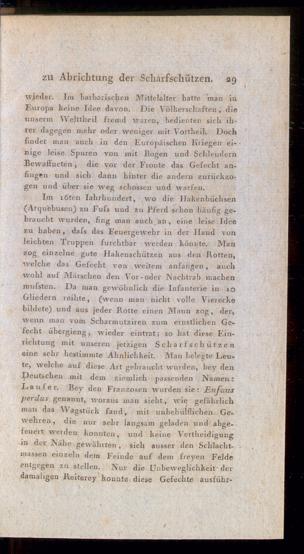 zu Abrichtung der Scharfschützen. 29
wieder. Im barbarischen Mittelalter hatte man in
Europa keine Idee davon. Die Völkerschaften, die
unserm Welttheil fremd waren, bedienten sich ih-
rer dagegen mehr oder weniger mit Vortheil. Doch
findet man auch in den Europäischen Kriegen ei-
nige leise Spuren von mit Bogen und Schleudern
Bewaffneten, die vor der Fronte das Gefecht an-
fingen und sich dann hinter die andern zurückzo-
gen und über sie weg schossen und warfen.
Im 16ten Jahrhundert, wo die Hakenbüchsen
(Arquebusen) zu Fuss und zu Pferd schon häufig ge-
braucht wurden, fing man auch an, eine leise Idee
zu haben, dass das Feuergewehr in der Hand von
leichten Truppen furchtbar werden könnte. Man
zog einzelne gute Hakenschützen aus den Rotten,
welche das Gefecht von weitem anfangen, auch
wohl auf Märschen den Vor- oder Nachtrab machen
mussten. Da man gewöhnlich die Infanterie in 10
Gliedern reihte, (wenn man nicht volle Vierecke
bildete) und aus jeder Rotte einen Mann zog, der,
wenn man vom Scharmutziren zum ernstlichen Ge-
fecht übergieng, wieder eintrat; so hat diese Ein-
richtung mit unseren jetzigen Scharfschützen
eine sehr bestimmte Ähnlichkeit. Man belegte Leu-
te, welche auf diese Art gebraucht wurden, bey den
Deutschen mit dem ziemlich passenden Namen:
Laufer. Bey den Franzosen wurden sie: Enfans
perdus genannt, woraus man sieht, wie gefährlich
man das Wagstück fand, mit unbehülflichen Ge-
wehren, die nur sehr langsam geladen und abge-
feuert werden konnten, und keine Vertheidigung
in der Nähe gewährten, sich ausser den Schlacht-
massen einzeln dem Feinde auf dem freyen Felde
entgegen zu stellen. Nur die Unbeweglichkeit der
damaligen Reiterey konnte diese Gefechte ausführ-